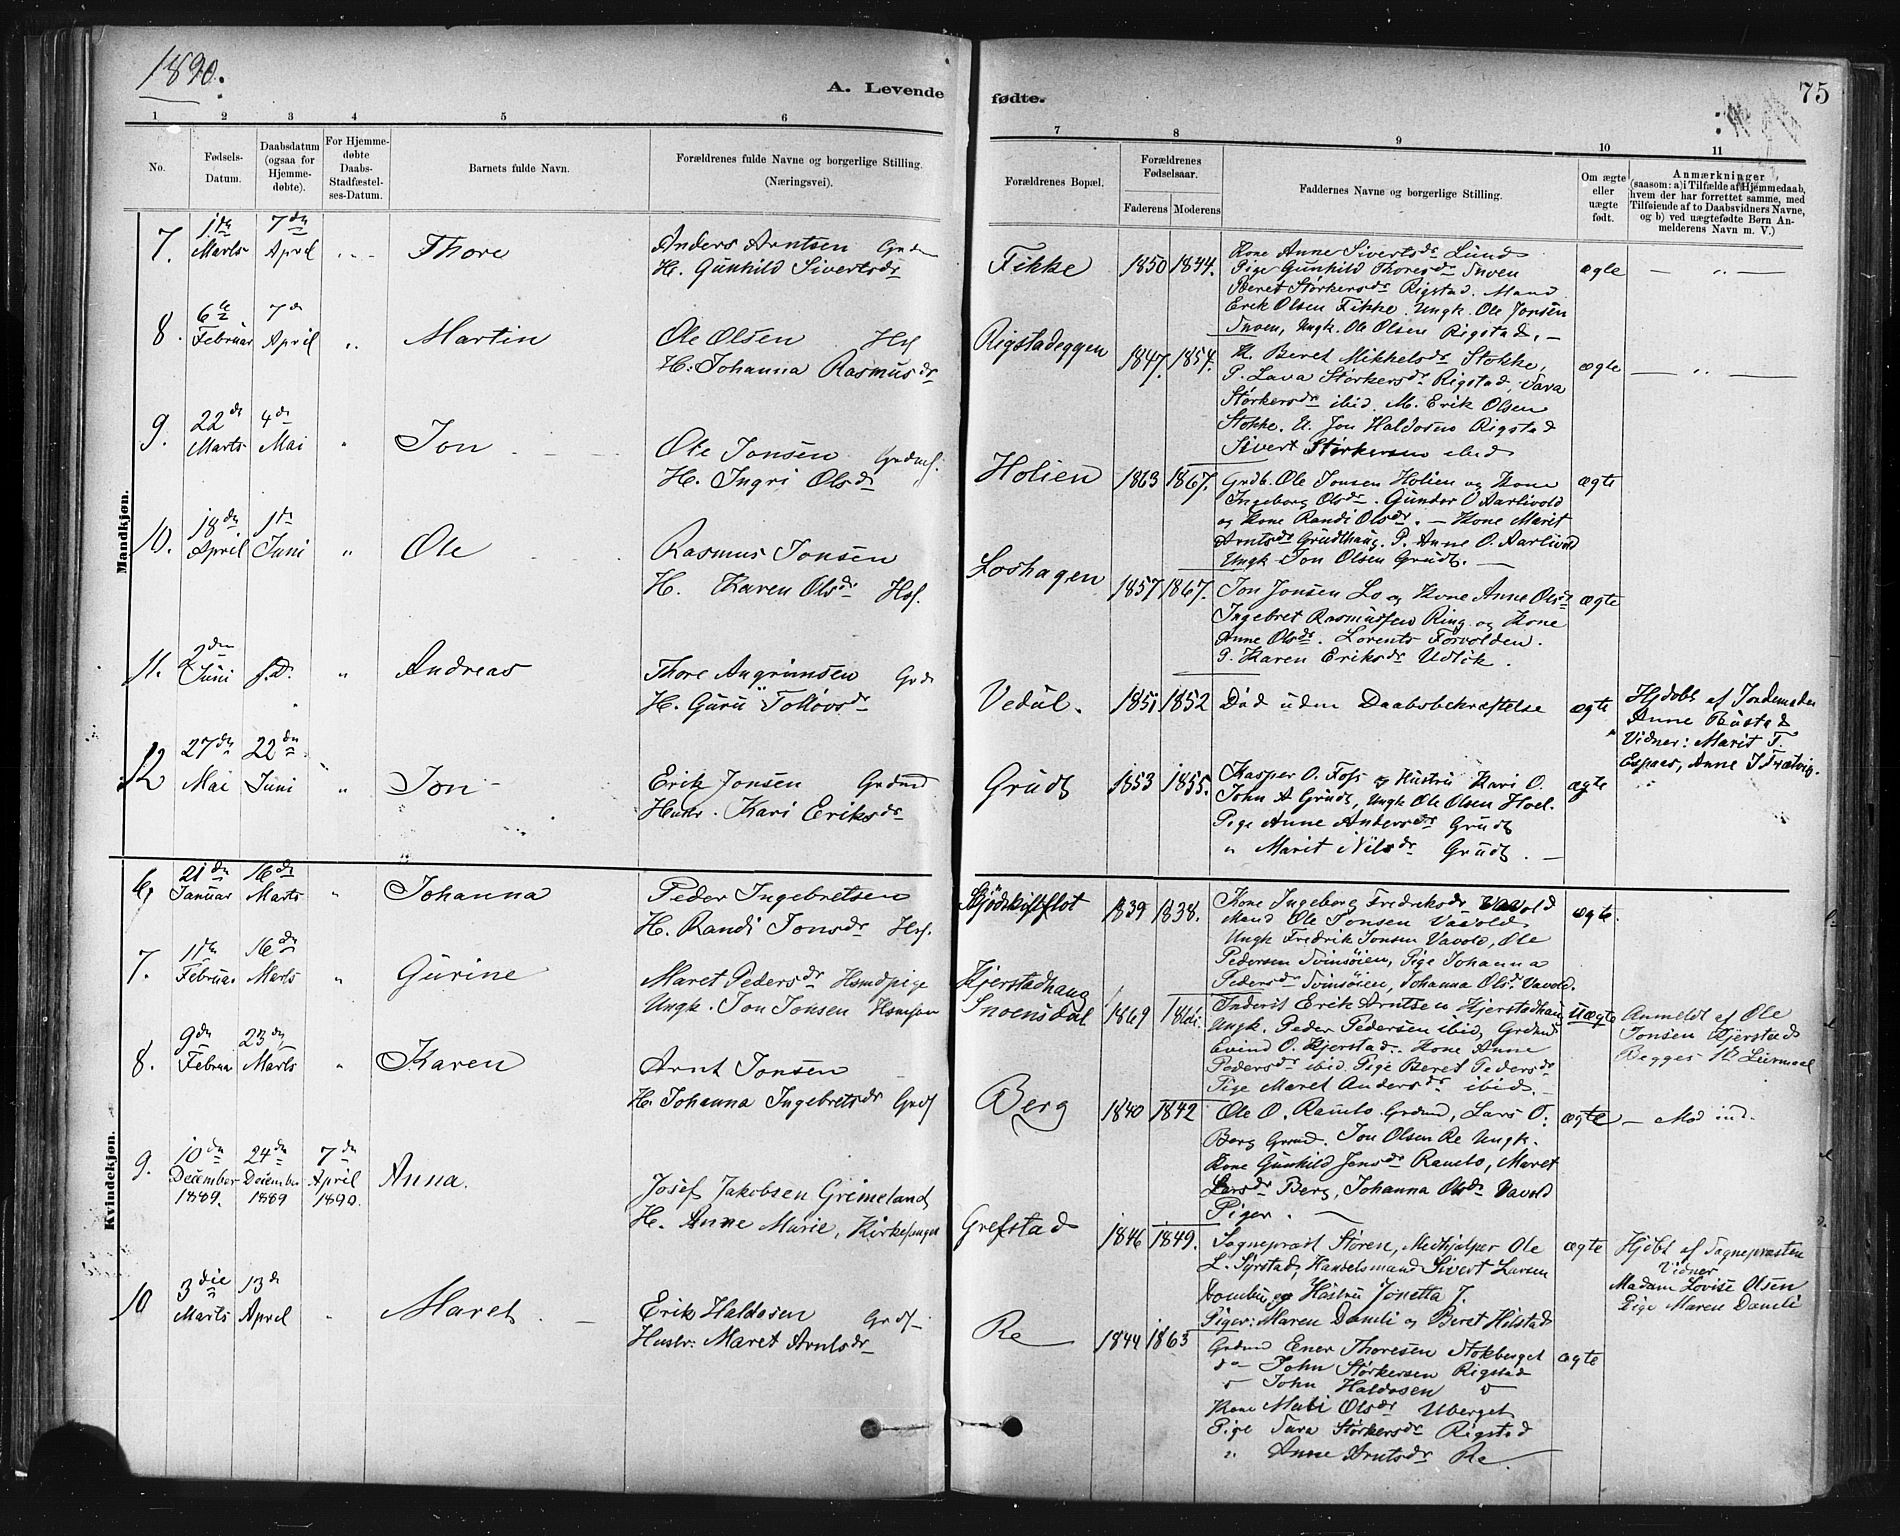 1890.
A. Levende
fødte.
75
1 2 3 4 5 6 7 8 9 10 11
No.
Fødsels-
Datum.
Daabsdatum
(ogsaa for
Hjemme-
døbte).
For Hjemme-
døbte
Daabs-
Stadfæstel-
ses-Datum.
Barnets fulde Navn.
Forældrenes fulde Navne og borgerlige Stilling.
(Næringsvei).
Forældrenes Bopæl.
Forældrenes
Fødselsaar.
Faderens Moderens
Faddernes Navne og borgerlige Stilling.
Om ægte
eller
uægte
født.
Anmærkninger
(saasom: a) i Tilfælde af Hjemmedaab,
hvem der har forrettet samme, med
Tilføiende af to Daabsvidners Navne,
og b) ved uægtefødte Børn An-
melderens Navn m. V.)
Mandkjøn.
7. 1ste Marts 7de April Thore
Anders Arntsen
H. Gunhild Sivertsdr
Fikke 1850 1844.
Kone Anne Sivertsdr Lund
Pige Gunhild Thoresdr Snoen
Beret Størkersdr Rigstad. Mand
Erik Olsen Fikke. Ungk. Ole Jonsen
Snoen, Ungk. Ole Olsen Rigstad. —
ægte — „ —
8. 6te Februar 7de April „ Martin
Ole Olsen Hsf
H: Johanna Rasmusdr
Rigstadeggen 1847. 1854.
K. Beret Mikkelsdr Stokke,
P. Lava Størkersdr Rigstad, Sava
Størkersdr ibid. M. Erik Olsen
Stokke. U. Jon Haldosen Rigstad
Sivert Størkersen ibid
ægte — „ —
9. 22de Marts 4de Mai „ Jon
Ole Jonsen Grdmf.
H. Ingri Olsdr
Holien 1863 1867.
Grdb. Ole Jonsen Holien og Kone
Ingeborg Olsdr. Gunder O Aarlivold
og Kone Randi Olsdr. — Kone Marit
Arntsdr Grudthaug. P. Anne O. Aarlivold
Ungk Jon Olsen Grudt. —
ægte
10. 18de April 1ste Juni „ Ole
Rasmus Jonsen
H. Karen Olsdr Hsf.
Loshagen 1857 1867.
Jon Jonsen Lo og Kone Anne Olsdr
Ingebret Rasmussen Ring og Kone
Anne Olsdr. Lorents Forvolden.
P. Karen Eriksdr Udlik.
ægte
11. 2den Juni s.D. „ Andreas
Thore Angrimsen
H. Guru Tollovsdr
Vedul. 1851. 1852
Død uden Daabsbekræftelse
ægte
Hjdøbt af Jordemoder
Anne Bustad
Vidner: Marit T.
Espaas, Anne J Frætvig.
12 27de Mai 22de Juni „ Jon
Erik Jonsen Grdmd
Hustr. Kari Eriksdr
Grudt 1853 1855.
Kasper O. Foss og Hustru Kari O.
John A Grudt, Ungk Ole Olsen Hoel.
Pige Anne Andersdr Grudt
„ Marit Nilsdr Grudt. —
ægte
Kvindekjøn.
6. 21de Januar 16de Marts „ Johanna
Peder Ingebretsen
H. Randi Jonsdr Hsf.
1839 1838.
Kone Ingeborg Fredriksdr Vavold
Mand Ole Jonsen Vavold,
Ungk Fredrik Jonsen Vavold, Ole
Pedersen Svinsøien, Pige Johanna
Pedersdr Svinsøien, Johanna Olsdr Vavold.
ægte.
7. 1ste Februar 16de Marts „ Gurine
Maret Pedersdr Hsmdpige
Ungk. Jon Jonsen
Kjerstadhaug
Snoensdal 1869
Inderst Erik Arntsen Kjerstadhau
Ungk. Peder Pedersen ibid, Grdmd
Evind O. Kjerstad. Kone Anne
Pedersdr ibid. Pige Beret Pedersdr
Pige Maret Andersdr ibid. —
uægte
Anmeldt af Ole
Jonsen Kjerstad
Begges 1ste Leirmaal
8. 9de Februar 23de Marts „ Karen
Arnt Jonsen
H. Johanna Ingebretsdr Grdf
Berg 1840 1842
Ole O. Ramlo Grdmd, Lars O.
Berg Grdmd. Jon Olsen Re Ungk.
Kone Gunhild Jensdr Ramlo, Maret
Larsdr Berg, Johanna Olsdr Vavold
Piger. —
ægte — Mod ind.
9. 10de December 1889. 24de December 1889 7de April 1890. Anna.
Josef Jakobsen Grimeland
H. Anne Marie, Kirkesanger
Grefstad 1846 1849.
Sognepræst Støren, Medhjelper Ole
L. Syrstad, Handelsmand Sivert Larsen
og Hustru Jonetta J.
Piger: Maren Damli og Beret Hilstad
ægte
Hjdøbt af Sognepræsten
Vidner
Madam Lovise Olsen
Pige Maren Damli
10 3die Marts 13de April „ Maret —
Erik Haldosen Grdf.
Hustr: Maret Arntsdr
Re 1844 1863
Grdmd Ener Thoresen Stokberget
do John Størkersen Rigstad
do John Haldosen do
Kone Mali Olsdr Uberget
Pige Sava Størkersdr Rigstad
„ Anne Arntsdr Re.
ægte